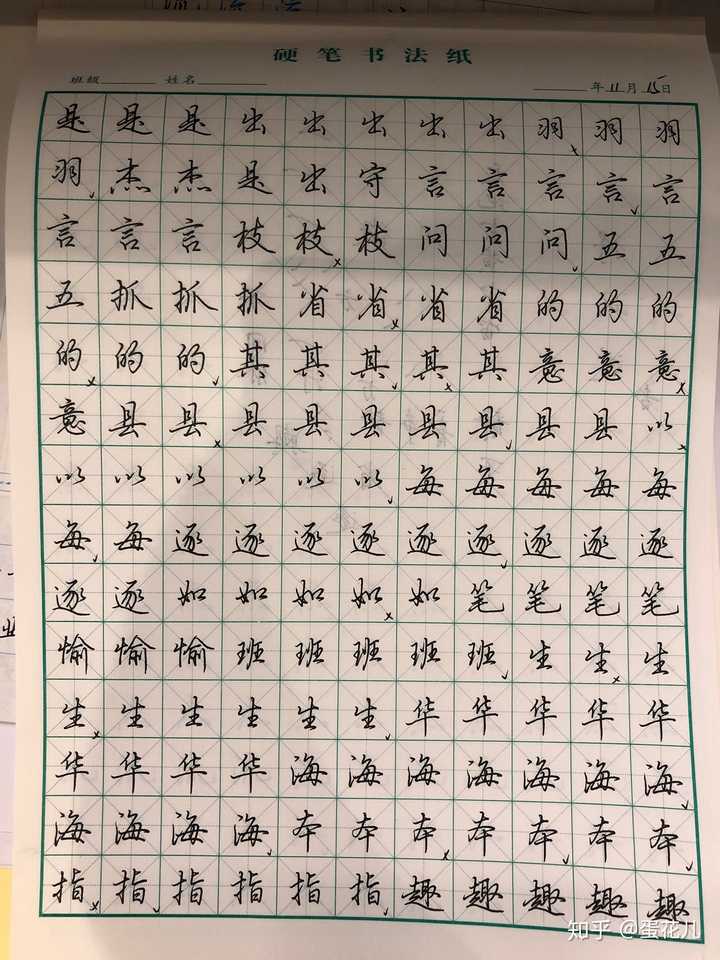 硬笔书法纸
班级 姓名 年11月15日
是是是出出出出出羽羽羽
羽杰杰是出守言言言言言
言言言枝枝枝问问问五五
五抓抓抓省省省省的的的
的的的其其其其其意意意
意县县县县县县县县县以
以以以以以以每每每每每
每每逐逐逐逐逐逐逐逐逐
逐逐如如如如如笔笔笔笔
愉愉愉班班班班班生生生
生生生生生生华华华华华
华华华华海海海海海海海
海海海海本本本本本本本
指指指指指指趣趣趣趣趣
知乎 @蛋花儿